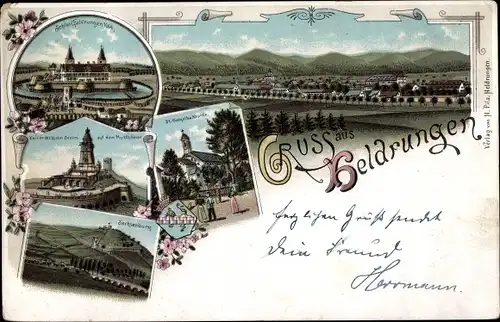 Schloss Heldrungen
Kaiser Wilhelm Denkm. auf dem Kyffhäuser
Sachsenburg
GRUSS aus
Heldrungen
Verlag von H. Pilz, Heldrungen.
herzlichen Gruß sendet
dein Freund
Herrmann.